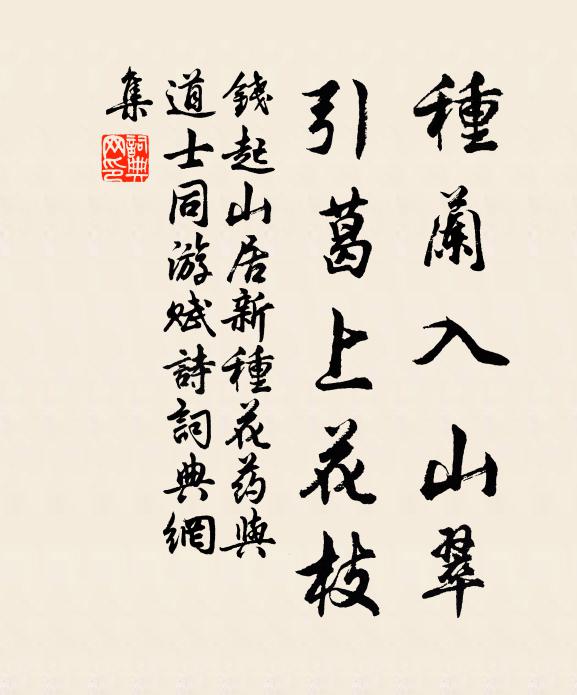 種蘭入山翠
引葛上花枝
錢起山居新種花药與
道士同游赋詩詞典網
集
詞典
网印